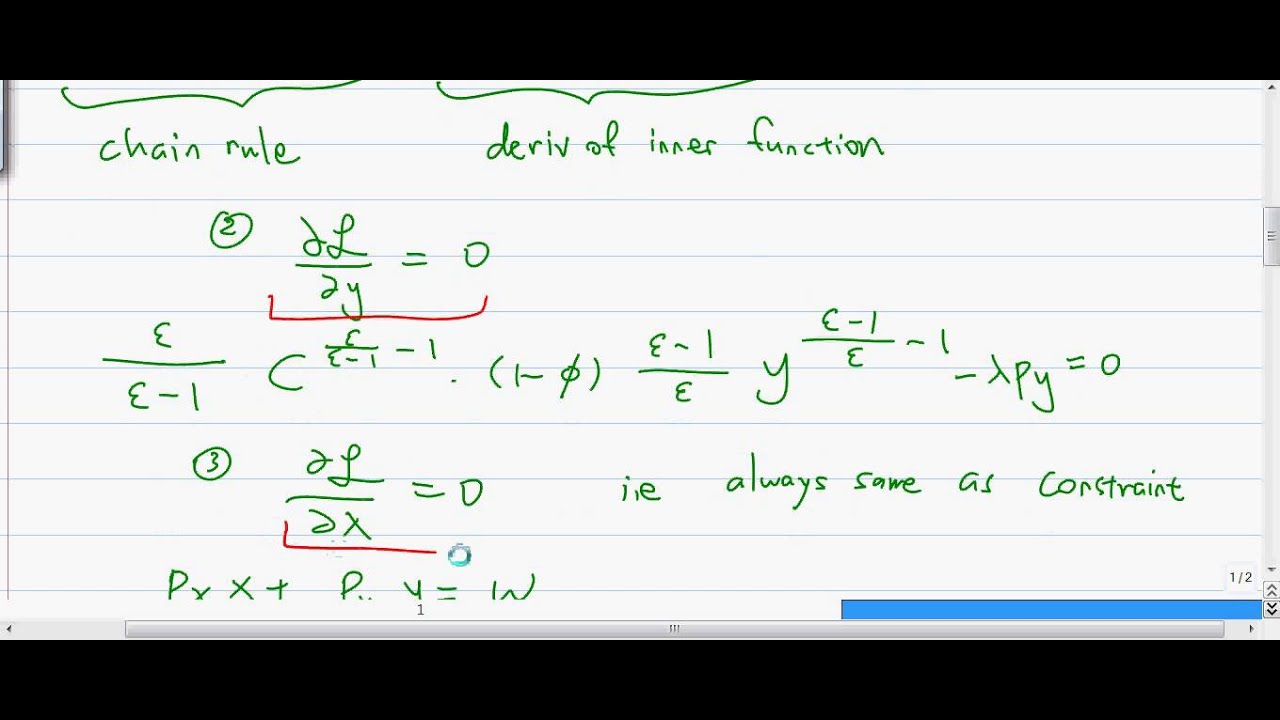 chain rule deriv of inner function
② ∂ℒ/∂y = 0
ε/(ε-1) C^(ε/(ε-1) - 1) · (1-ϕ) (ε-1)/ε y^((ε-1)/ε - 1) - λPy = 0
③ ∂ℒ/∂λ = 0 i.e always same as constraint
Px X + Py y = W
1/2
1